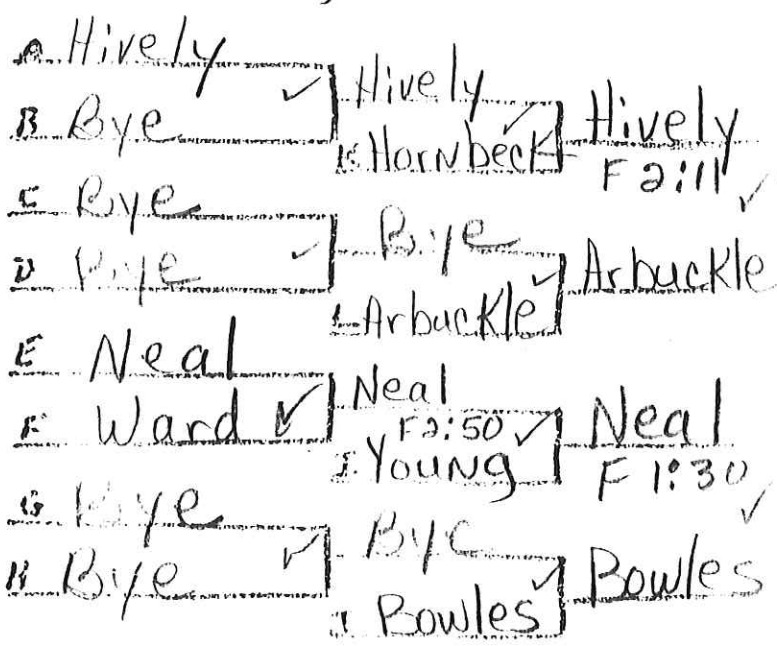 A Hively
B Bye
C Bye
D Bye
E Neal
F Ward
G Bye
H Bye
Hively
K Hornbeck
Bye
L Arbuckle
Neal
F 2:50
I Young
Bye
Bowles
Hively
F 2:11
Arbuckle
Neal
F 1:30
Bowles